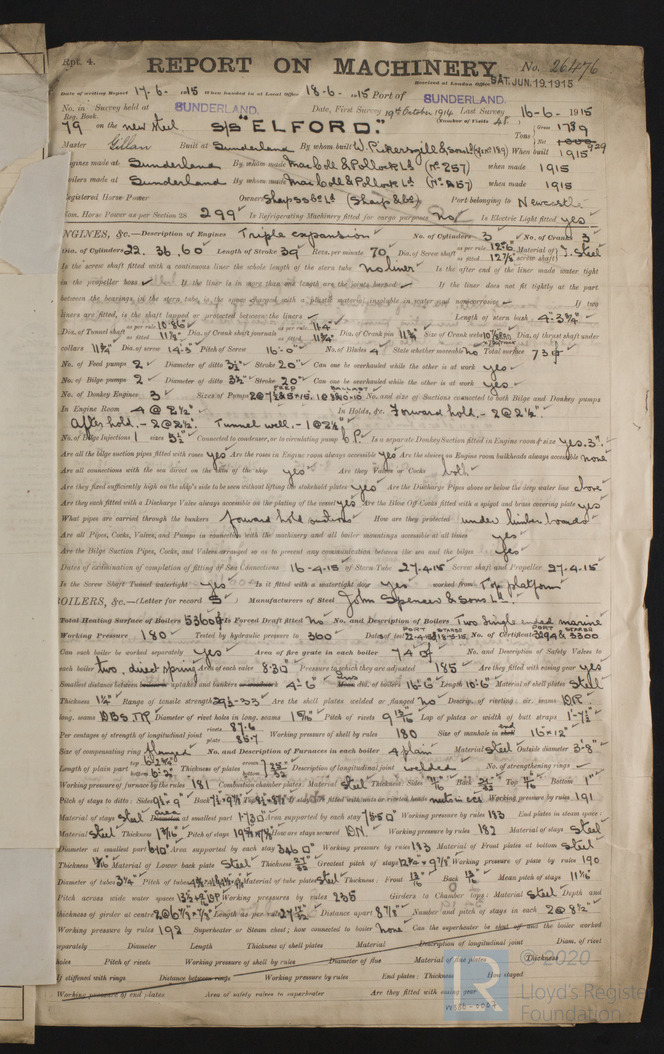 Rpt. 4.
REPORT ON MACHINERY. No. 26476
Received at London Office SAT. JUN. 19. 1915
Date of writing Report 17-6- 1915 When handed in at Local Office 18-6- 1915 Port of SUNDERLAND.
No. in Survey held at SUNDERLAND. Date, First Survey 19th October 1914 Last Survey 16-6- 1915
Reg. Book. (Number of Visits 48)
79 on the new steel S/S "ELFORD." Tons Gross 1739 Net 929
Master Gillan Built at Sunderland By whom built W. Pickersgill & Sons Ld (No 189) When built 1915
Engines made at Sunderland By whom made MacColl & Pollock Ld (No 257) when made 1915
Boilers made at Sunderland By whom made MacColl & Pollock Ld (No 257) when made 1915
Registered Horse Power Owners Sharp SS Co Ld (Sharp & Co) Port belonging to Newcastle
Nom. Horse Power as per Section 28 299 Is Refrigerating Machinery fitted for cargo purposes No Is Electric Light fitted yes
ENGINES, &c.—Description of Engines Triple expansion No. of Cylinders 3 No. of Cranks 3
Dia. of Cylinders 22. 36. 60 Length of Stroke 39 Revs. per minute 70 Dia. of Screw shaft as per rule 12.6 as fitted 12 7/8 Material of screw shaft I. Steel
Is the screw shaft fitted with a continuous liner the whole length of the stern tube no liner Is the after end of the liner made water tight
in the propeller boss If the liner is in more than one length are the joints burned If the liner does not fit tightly at the part
between the bearings in the stern tube, is the space charged with a plastic material insoluble in water and non-corrosive If two
liners are fitted, is the shaft lapped or protected between the liners Length of stern bush 4'-3 3/4"
Dia. of Tunnel shaft as per rule 10.86 as fitted 11 1/8 Dia. of Crank shaft journals as per rule 11.4 as fitted 11 3/4 Dia. of Crank pin 11 3/4 Size of Crank webs Dia. of thrust shaft under
collars 11 3/4 Dia. of screw 14'-3" Pitch of Screw 16'-0" No. of Blades 4 State whether moveable no Total surface 73
No. of Feed pumps 2 Diameter of ditto 3 1/2 Stroke 20" Can one be overhauled while the other is at work yes
No. of Bilge pumps 2 Diameter of ditto 3 1/2 Stroke 20" Can one be overhauled while the other is at work yes
No. of Donkey Engines 3 Sizes of Pumps No. and size of Suctions connected to both Bilge and Donkey pumps
In Engine Room 4 @ 2 1/2" In Holds, &c. Forward hold - 2 @ 2 1/2"
After hold. - 2 @ 2 1/2". Tunnel well. - 1 @ 2 1/2"
No. of Bilge Injections 1 sizes 5 1/2" Connected to condenser, or to circulating pump C.P. Is a separate Donkey Suction fitted in Engine room & size yes. 3".
Are all the bilge suction pipes fitted with roses yes Are the roses in Engine room always accessible yes Are the sluices on Engine room bulkheads always accessible none
Are all connections with the sea direct on the skin of the ship yes Are they Valves or Cocks both
Are they fixed sufficiently high on the ship's side to be seen without lifting the stokehold plates yes Are the Discharge Pipes above or below the deep water line above
Are they each fitted with a Discharge Valve always accessible on the plating of the vessel yes Are the Blow Off Cocks fitted with a spigot and brass covering plate yes
What pipes are carried through the bunkers forward hold suctions How are they protected under limber boards
Are all Pipes, Cocks, Valves, and Pumps in connection with the machinery and all boiler mountings accessible at all times yes
Are the Bilge Suction Pipes, Cocks, and Valves arranged so as to prevent any communication between the sea and the bilges yes
Dates of examination of completion of fitting of Sea Connections 16-4-15 of Stern Tube 27-4-15 Screw shaft and Propeller 27-4-15
Is the Screw Shaft Tunnel watertight yes Is it fitted with a watertight door yes worked from Top platform
BOILERS, &c.—(Letter for record S) Manufacturers of Steel John Spencer & Sons Ld
Total Heating Surface of Boilers 5360 Is Forced Draft fitted No No. and Description of Boilers Two Single ended marine
Working Pressure 180 Tested by hydraulic pressure to 360 Date of test No. of Certificate 3294 & 3300
Can each boiler be worked separately yes Area of fire grate in each boiler 74 No. and Description of Safety Valves to
each boiler two, direct spring Area of each valve 8.30 Pressure to which they are adjusted 185 Are they fitted with easing gear yes
Smallest distance between uptakes and bunkers 4'-6" dia. of boilers 16'-6" Length 10'-6" Material of shell plates Steel
Thickness 1 1/4 Range of tensile strength 29 1/2-33 Are the shell plates welded or flanged no Descrip. of riveting: cir. seams D.R.
long. seams D.B.S. T.R Diameter of rivet holes in long. seams 1 5/16 Pitch of rivets Lap of plates or width of butt straps 1'-7 1/2"
Per centages of strength of longitudinal joint rivets 87.6 plate 85.7 Working pressure of shell by rules 180 Size of manhole in end 16" x 12"
Size of compensating ring flanged No. and Description of Furnaces in each boiler 4 plain Material Steel Outside diameter 3'-8"
Length of plain part Thickness of plates Description of longitudinal joint welded No. of strengthening rings
Working pressure of furnace by the rules 181 Combustion chamber plates: Material Steel Thickness: Sides Back Top Bottom 1"
Pitch of stays to ditto: Sides Back Top If stays are fitted with nuts or riveted heads nuts in ccs Working pressure by rules 191
Material of stays Steel Area at smallest part 1.730 Area supported by each stay Working pressure by rules 183 End plates in steam space:
Material Steel Thickness Pitch of stays How are stays secured D.N. Working pressure by rules 182 Material of stays Steel
Diameter at smallest part Area supported by each stay 346 Working pressure by rules 183 Material of Front plates at bottom Steel
Thickness Material of Lower back plate Steel Thickness Greatest pitch of stays Working pressure of plate by rules 190
Diameter of tubes 3 1/4 Pitch of tubes Material of tube plates Steel Thickness: Front Back Mean pitch of stays
Pitch across wide water spaces Working pressures by rules 235 Girders to Chamber tops: Material Steel Depth and
thickness of girder at centre Length as per rule Distance apart 8 7/8 Number and pitch of stays in each 2 @ 8 1/2"
Working pressure by rules 192 Superheater or Steam chest; how connected to boiler None Can the superheater be shut off and the boiler worked
separately Diameter Length Thickness of shell plates Material Description of longitudinal joint Diam. of rivet
holes Pitch of rivets Working pressure of shell by rules Diameter of flue Material of flue plates Thickness
If stiffened with rings Distance between rings Working pressure by rules End plates: Thickness How stayed
Working pressure of end plates Area of safety valves to superheater Are they fitted with easing gear
© 2020
Lloyd's Register
Foundation